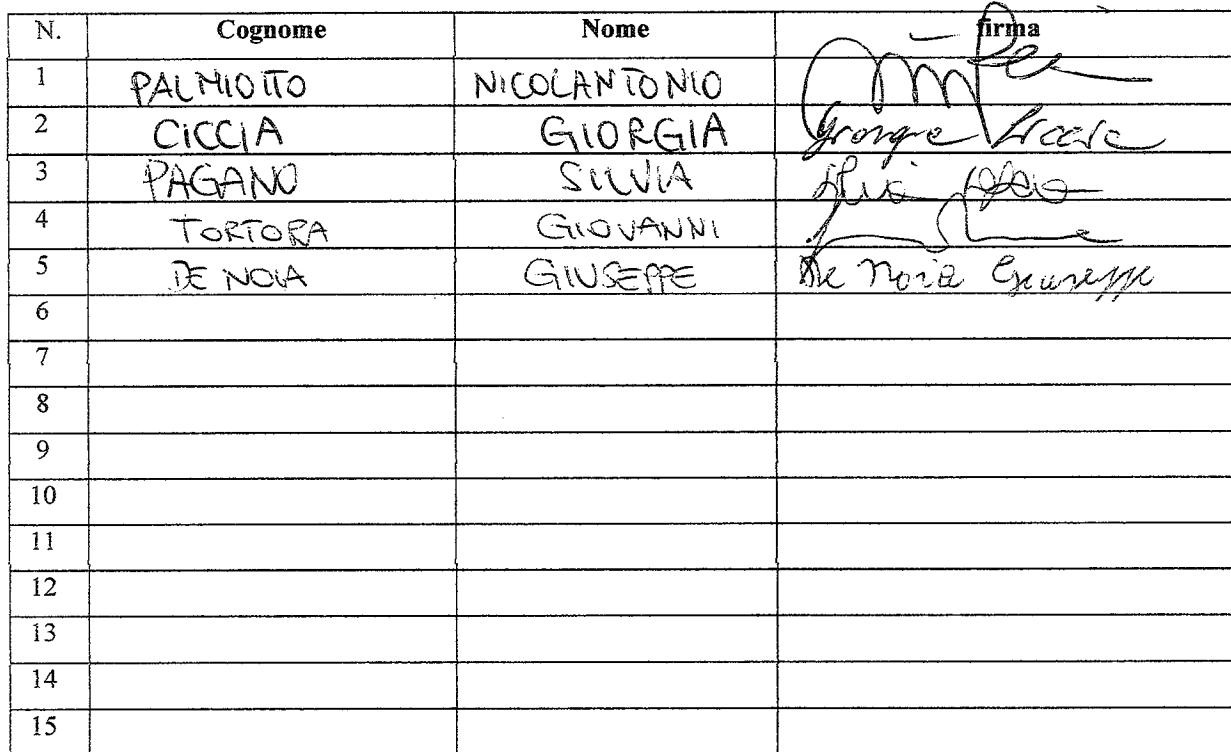 N. Cognome Nome firma
1 PALMIOTTO NICOLANTONIO
2 CICCIA GIORGIA Giorgia Ciccia
3 PAGANO SILVIA Silvia
4 TORTORA GIOVANNI
5 DE NOIA GIUSEPPE De Noia Giuseppe
6
7
8
9
10
11
12
13
14
15